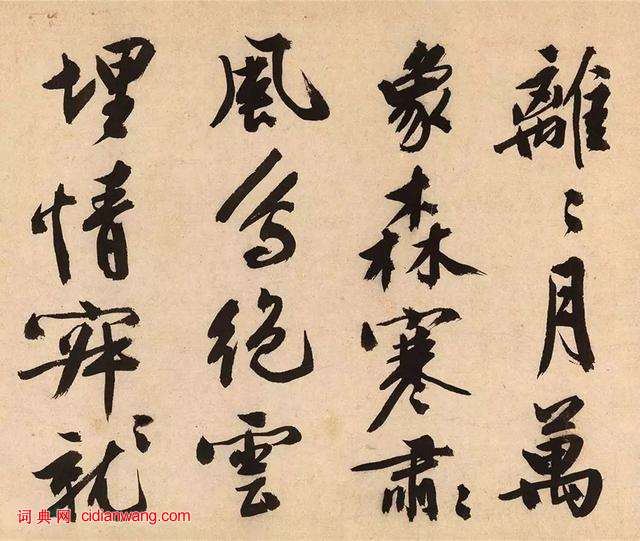 離〻月萬
象森寒肅〻
風絕雲
埋情就〻
词典网 cidianwang.com